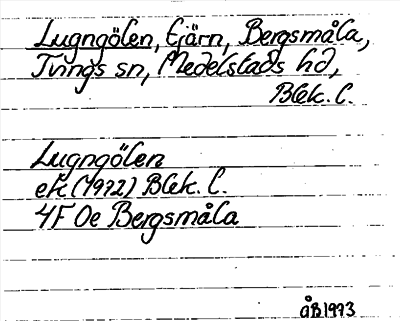 Lugngölen, tjärn, Bergsmåla,
Tvings sn, Medelstads hd,
Blek. l.
Lugngölen
ek (1972) Blek. l.
4F 0e Bergsmåla
ÅB 1993